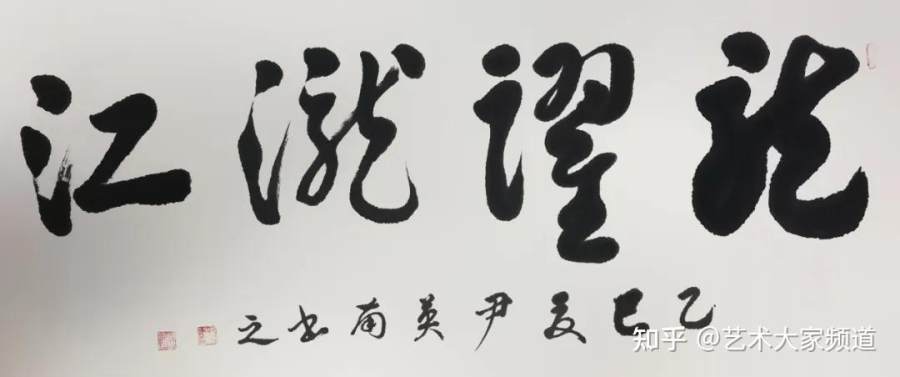 龍躍瀧江
乙巳夏尹英南书之
知乎 @艺术大家频道